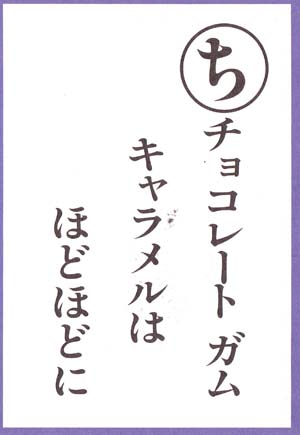 ち
チョコレート ガム
キャラメルは
ほどほどに